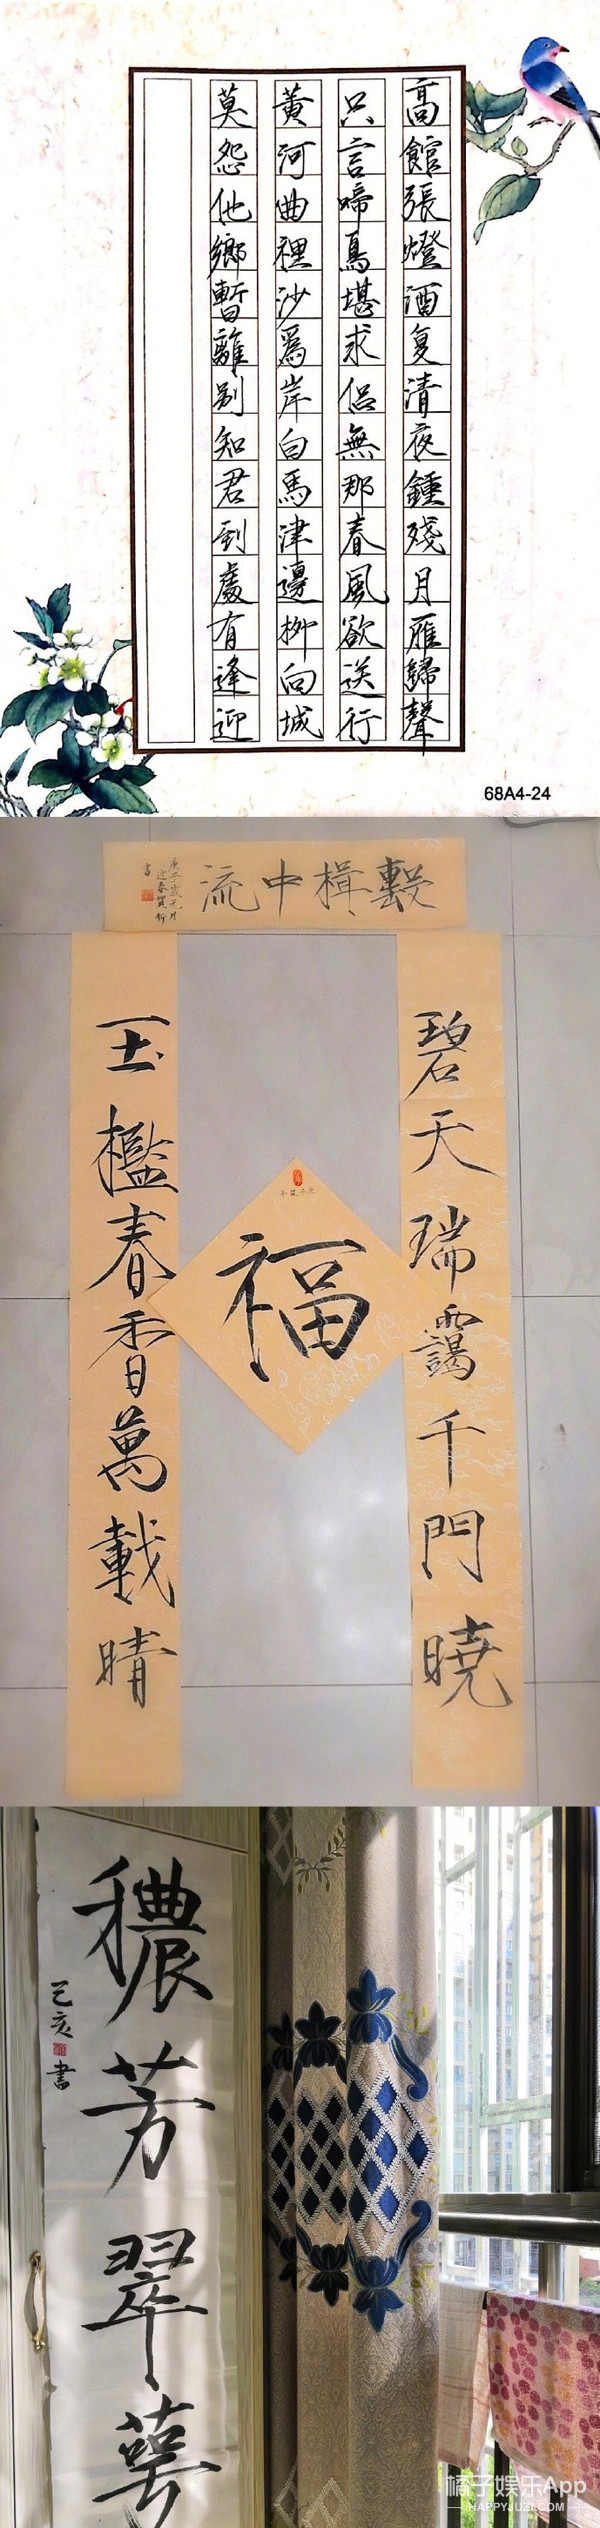 高館張燈酒复清夜鍾殘月雁歸聲
只言啼鳥堪求侶無那春風欲送行
黃河曲裡沙爲岸白馬津邊柳向城
莫怨他鄉暫離别知君到處有逢迎
68A4-24
擊楫中流
庚子歲元月
迎春賀新
書
碧天瑞靄千門曉
玉檻春香萬載晴
庚子鼠年
福
穠芳翠萼
己亥書
橘子娱乐App
HAPPYJUZI.COM